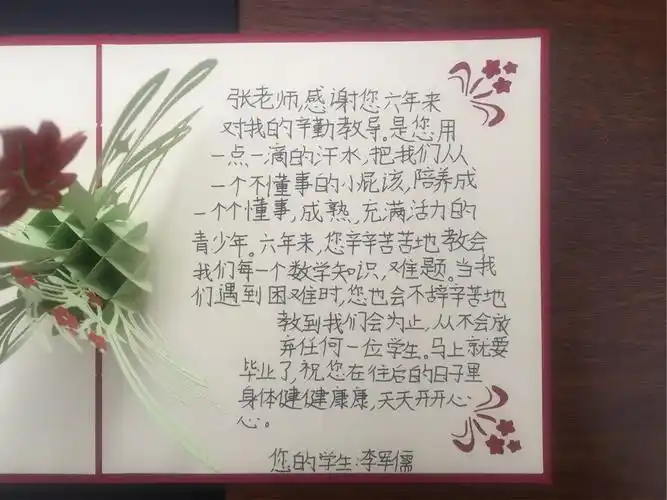 张老师,感谢您六年来
对我的辛勤教导。是您用
一点一滴的汗水,把我们从
一个不懂事的小屁孩,陪养成
一个个懂事,成熟,充满活力的
青少年。六年来,您辛辛苦苦地教会
我们每一个数学知识,难题。当我
们遇到困难时,您也会不辞辛苦地
教到我们会为止,从不会放
弃任何一位学生。马上就要
毕业了,祝您在往后的日子里
身体健健康康,天天开开心
心。
您的学生:李军儒